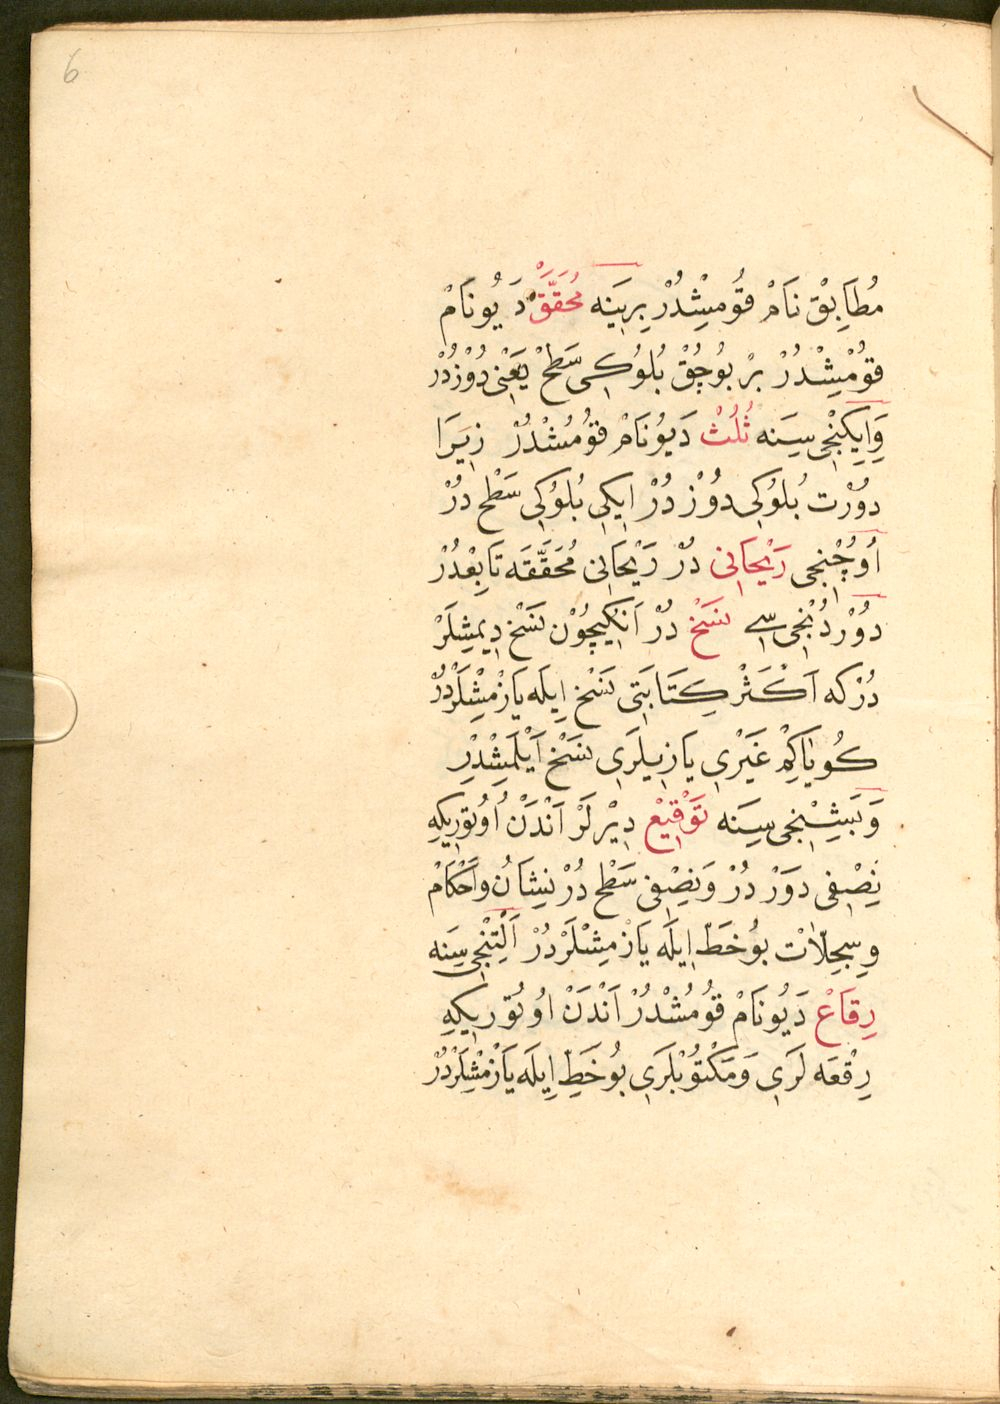 6
مُطَابِقْ نَامْ قُومِشْدُرْ بِرِينَه مُحَقَّقْ دَيُو نَامْ
قُومِشْدُرْ بِرْ بُوچُقْ بُلُوكِى سَطْحْ يَعْنِى دُوزْدُرْ
وَاِيكِنْجِى سِنَه ثُلُثْ دَيُو نَامْ قُومُشْدُرْ زِيرَا
دُورْت بُلُوكِى دُوزْ دُرْ اِيكِى بُلُوكِى سَطْح دُرْ
اُوچُنْجِى رَيْحَانِى دُرْ رَيْحَانِى مُحَقَّقَه تَابِعْدُرْ
دُورْدُنْجِى سِى نَسْخْ دُرْ اَنِكِيچُونْ نَسْخ دِيمِشِلَرْ
دُرْكه اَكْثَرْ كِتَابَتِى نَسْخ اِيلَه يَازْمِشْلَرْدُرْ
كُويَاكِمْ غَيْرِي يَازِيلَرِي نَسْخ اَيْلَمِشْدِرْ
وَبَشِنْجِى سِنَه تَوْقِيعْ دِيرْلَرْ اَنْدَنْ اُوتُورِيكِه
نِصْفِى دَوَرْ دُرْ وَنِصْفِى سَطْح دُرْ نِشَانُ وَاَحْكَامْ
وسِجِلَّاتْ بُوخَطّ اِيلَه يَازْمِشْلَرْدُرْ اَلْتِنْجِى سِنَه
رِقَاعْ دَيُو نَامْ قُومُشْدُرْ اَنْدَنْ اُوتُورِيكِه
رِقْعَه لَرِي وَمَكْتُوبْلَرِي بُوخَطِّ اِيلَه يَازْمْشِلَرْدُرْ